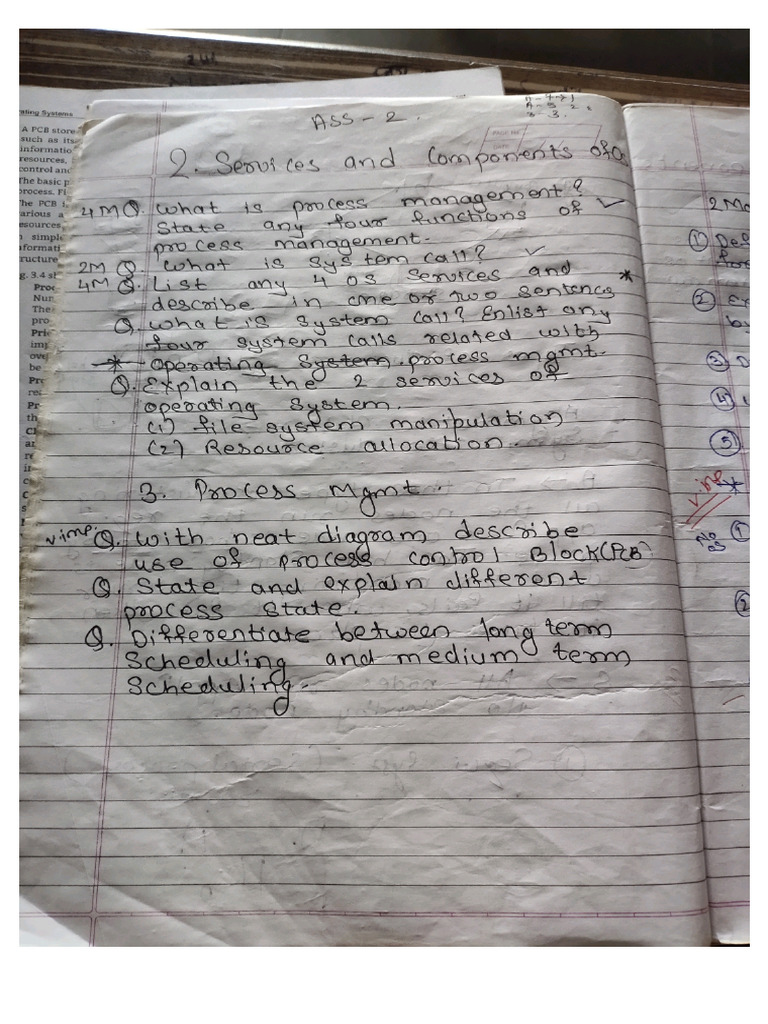 ating Systems
A PCB store
such as its
informatio
resources,
control and
The basic p
process. Fi
he PCB i
arious a
esources
simple
formati
ructure
g. 3.4 sh
Proc
Nun
Ther
pro
Pri
imp
ove
be
Pr
re
Pr
th
ASS - 2.
PAGE No.
DATE
2. Services and Components of OS
4M Q. What is process management?
State any four functions of ✓
process management.
2M Q. What is system call? ✓
4M Q. List any 4 OS services and *
describe in one or two sentence
Q. what is system call? Enlist any
four system calls related with
* operating System process mgmt.
Q. Explain the 2 services of
operating system.
(1) file system manipulation
(2) Resource allocation.
3. Process Mgmt.
v imp. Q. With neat diagram describe
use of Process control Block (PCB)
Q. State and explain different
process state.
Q. Differentiate between long term
Scheduling and medium term
Scheduling.
2 Ma
① Def
for
② Ex
by
③ D
④
⑤
v. imp
*
①
②